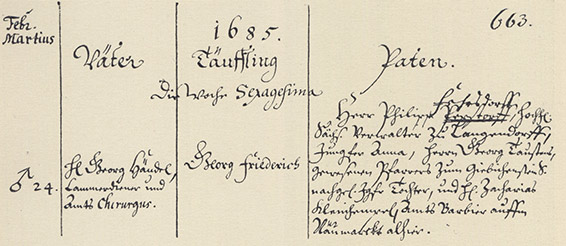 Febr.
Martius
1685.
663.
Väter
Täuffling
Paten.
Die Woche Sexagesima
♂ 24.
H. Georg Händel,
Cammerdiener und
Amts Chirurgus.
Georg Friederich
Herr Philipp Fehrsdorff, Hochfl.
Sächs Verwalter zu Langendorff,
Jungfer Anna, Herrn Georg Tausten,
gewesenen Pfarrers zum Giebichenstein
nachgel. Jgfr Tochter, und H. Zacharias
Kleinhempel, Amts Barbier auffm
Näumarckt alhier.